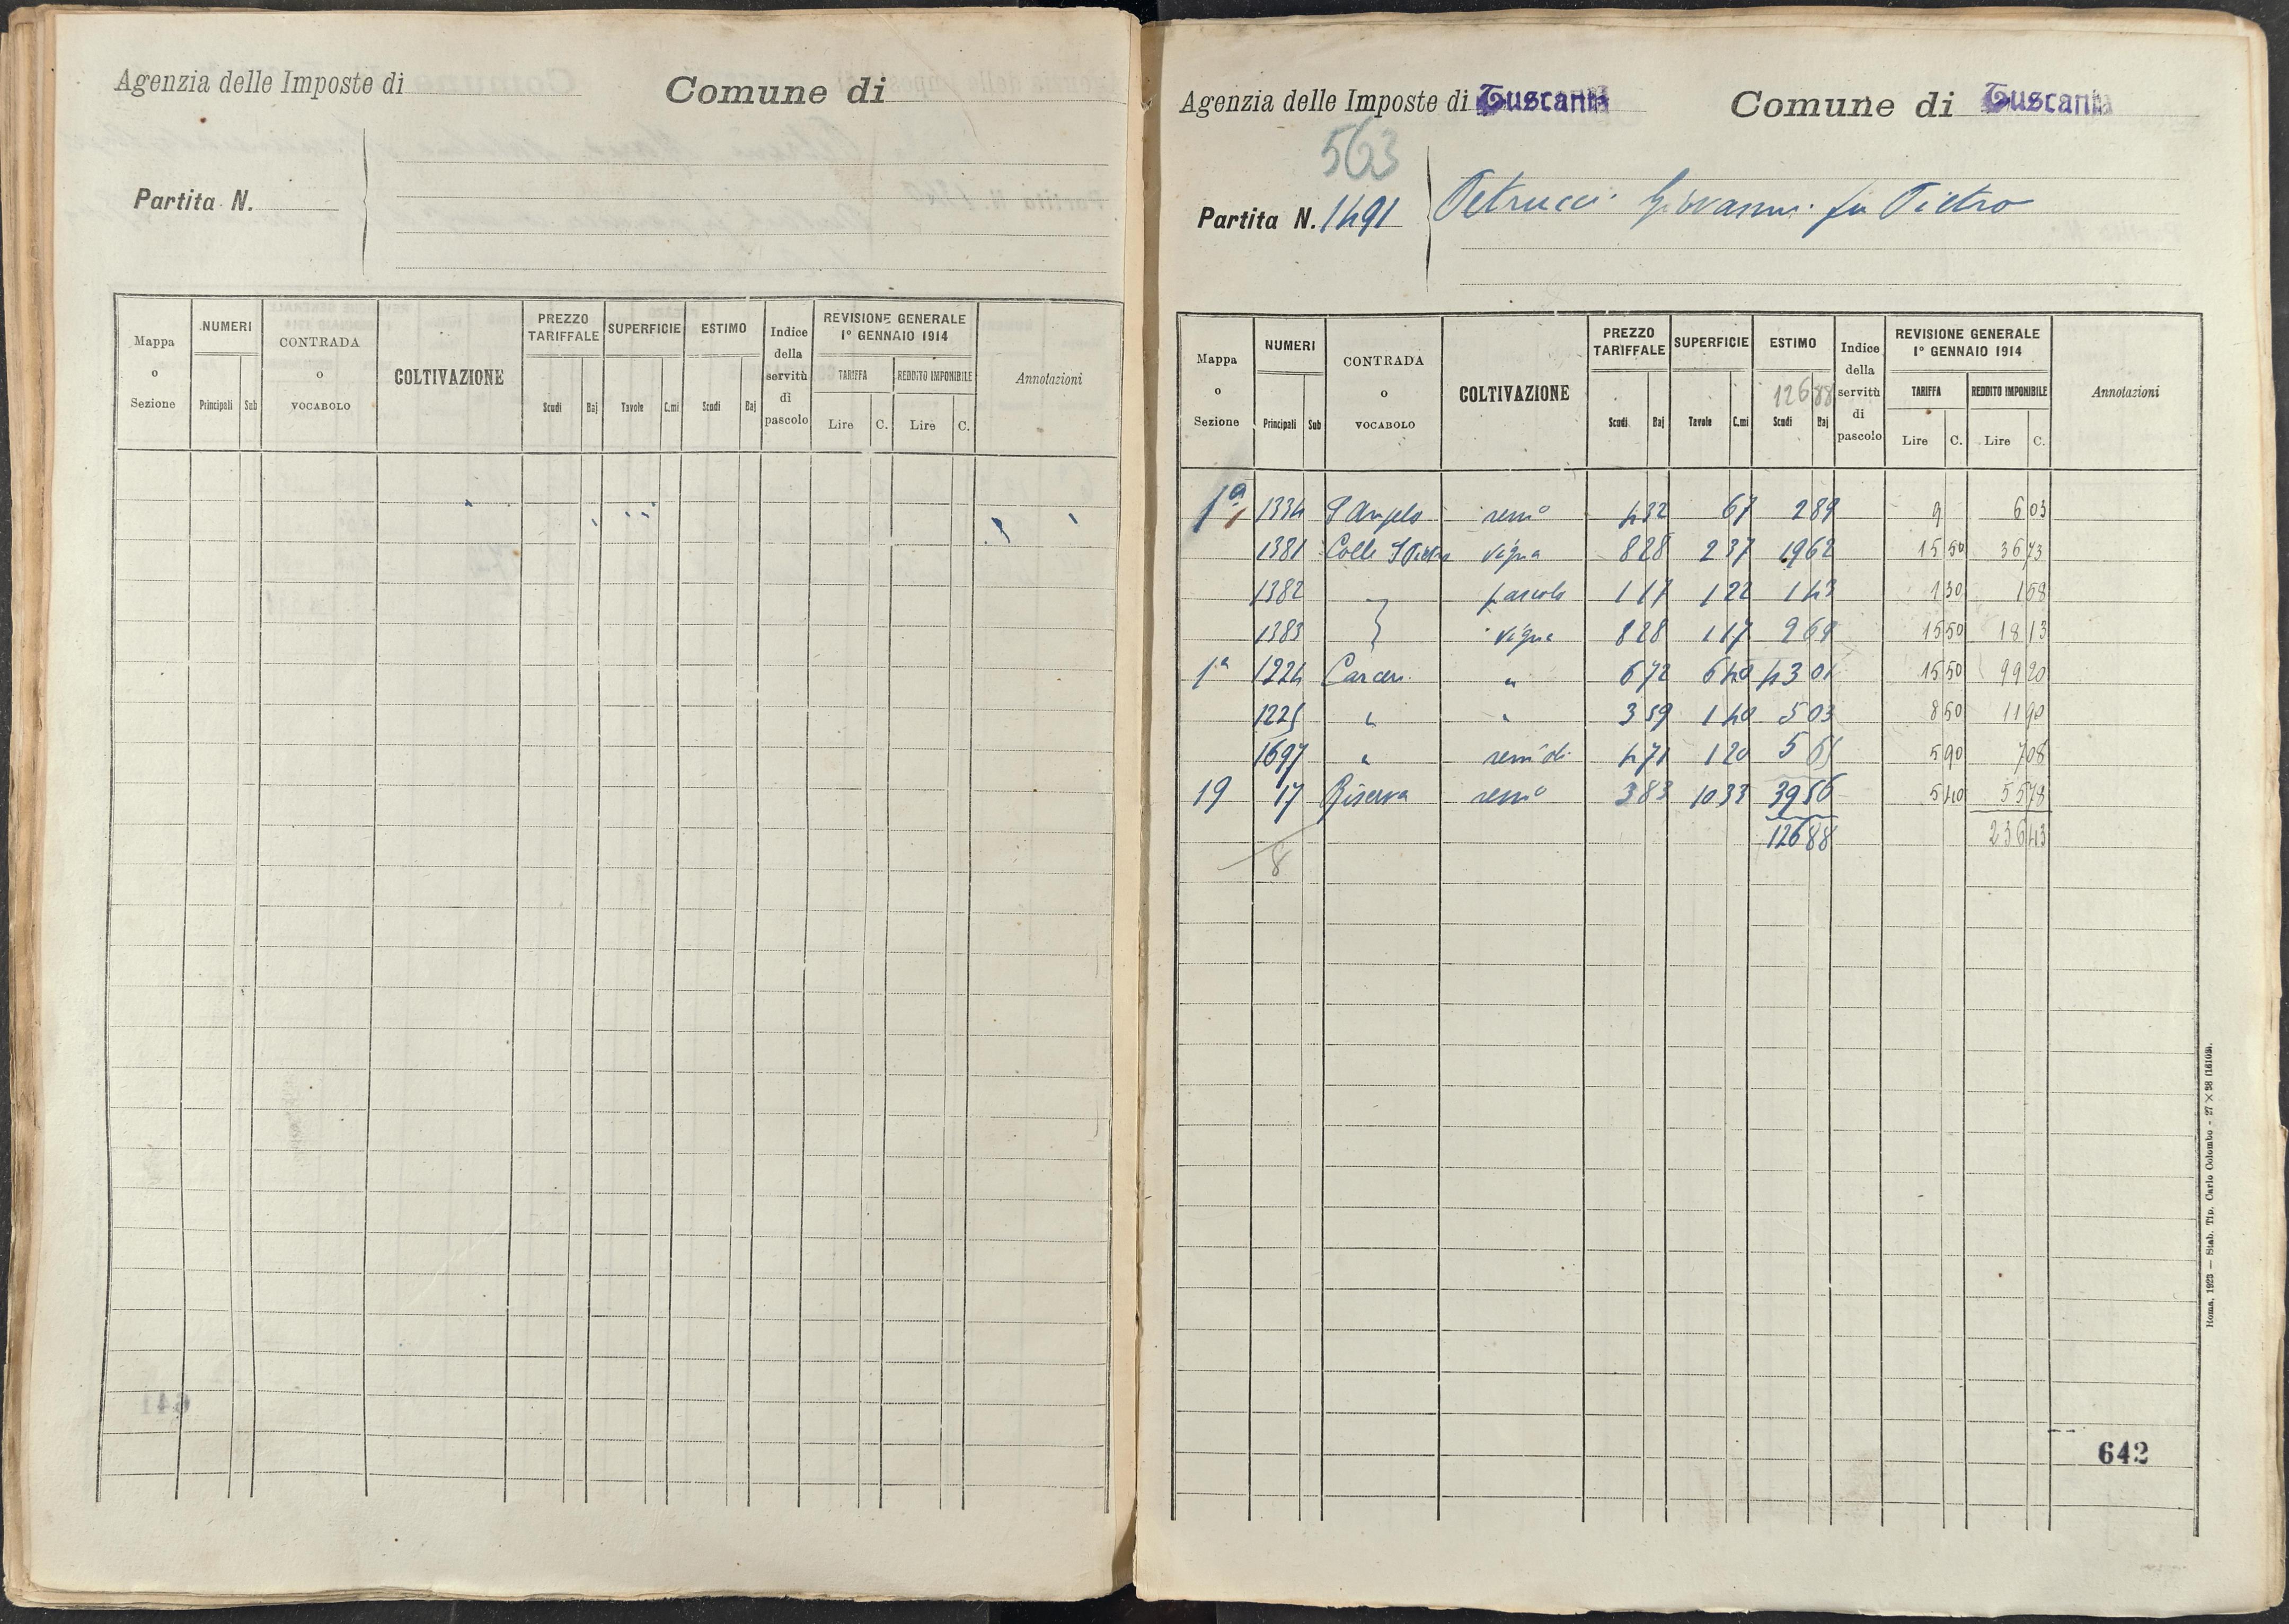 Agenzia delle Imposte di
Comune di
Partita N.
Mappa o Sezione NUMERI Principali Sub CONTRADA o VOCABOLO COLTIVAZIONE PREZZO TARIFFALE Scudi Baj SUPERFICIE Tavole C.mi ESTIMO Scudi Baj Indice della servitù di pascolo REVISIONE GENERALE 1° GENNAIO 1914 TARIFFA Lire C. REDDITO IMPONIBILE Lire C. Annotazioni
Agenzia delle Imposte di Tuscania
Comune di Tuscania
563
Partita N. 1491 Petrucci Giovanni fu Pietro
Mappa o Sezione NUMERI Principali Sub CONTRADA o VOCABOLO COLTIVAZIONE PREZZO TARIFFALE Scudi Baj SUPERFICIE Tavole C.mi ESTIMO 12688 Scudi Baj Indice della servitù di pascolo REVISIONE GENERALE 1° GENNAIO 1914 TARIFFA Lire C. REDDITO IMPONIBILE Lire C. Annotazioni
1ª 1334 S Angelo sem° 4 32 67 2 89 9 6 03
1381 Colle S Pietro vigna 8 28 2 37 19 62 15 50 36 73
1382 pascolo 1 17 1 22 1 43 1 30 1 58
1383 vigna 8 28 1 17 9 69 15 50 18 13
1ª 1224 Carceri " 6 72 6 40 43 01 15 50 99 20
1225 " " 3 59 1 40 5 03 8 50 11 90
1697 " 4 71 1 20 5 65 5 90 7 08
19 17 Riserva sem° 3 83 10 33 39 56 5 40 55 78
126 88 236 43
8
642
Roma, 1923 — Stab. Tip. Carlo Colombo - 27 × 38